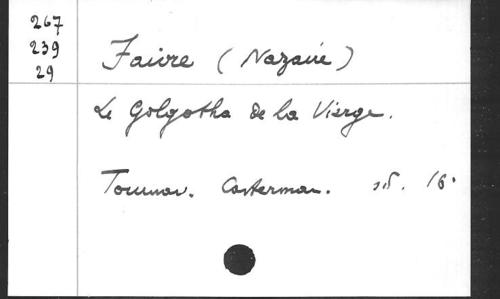 267
239
29
Faivre (Nazaire)
Le Golgotha de la Vierge.
Tournai. Casterman. s.d. 16°